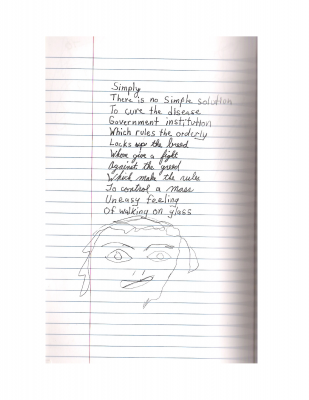 Simply
There is no simple solution
To cure the disease
Government institution
Which rules the orderly
Locks up the breed
Whom give a fight
Against the greed
Which make the rules
To control a mass
Uneasy feeling
Of walking on glass